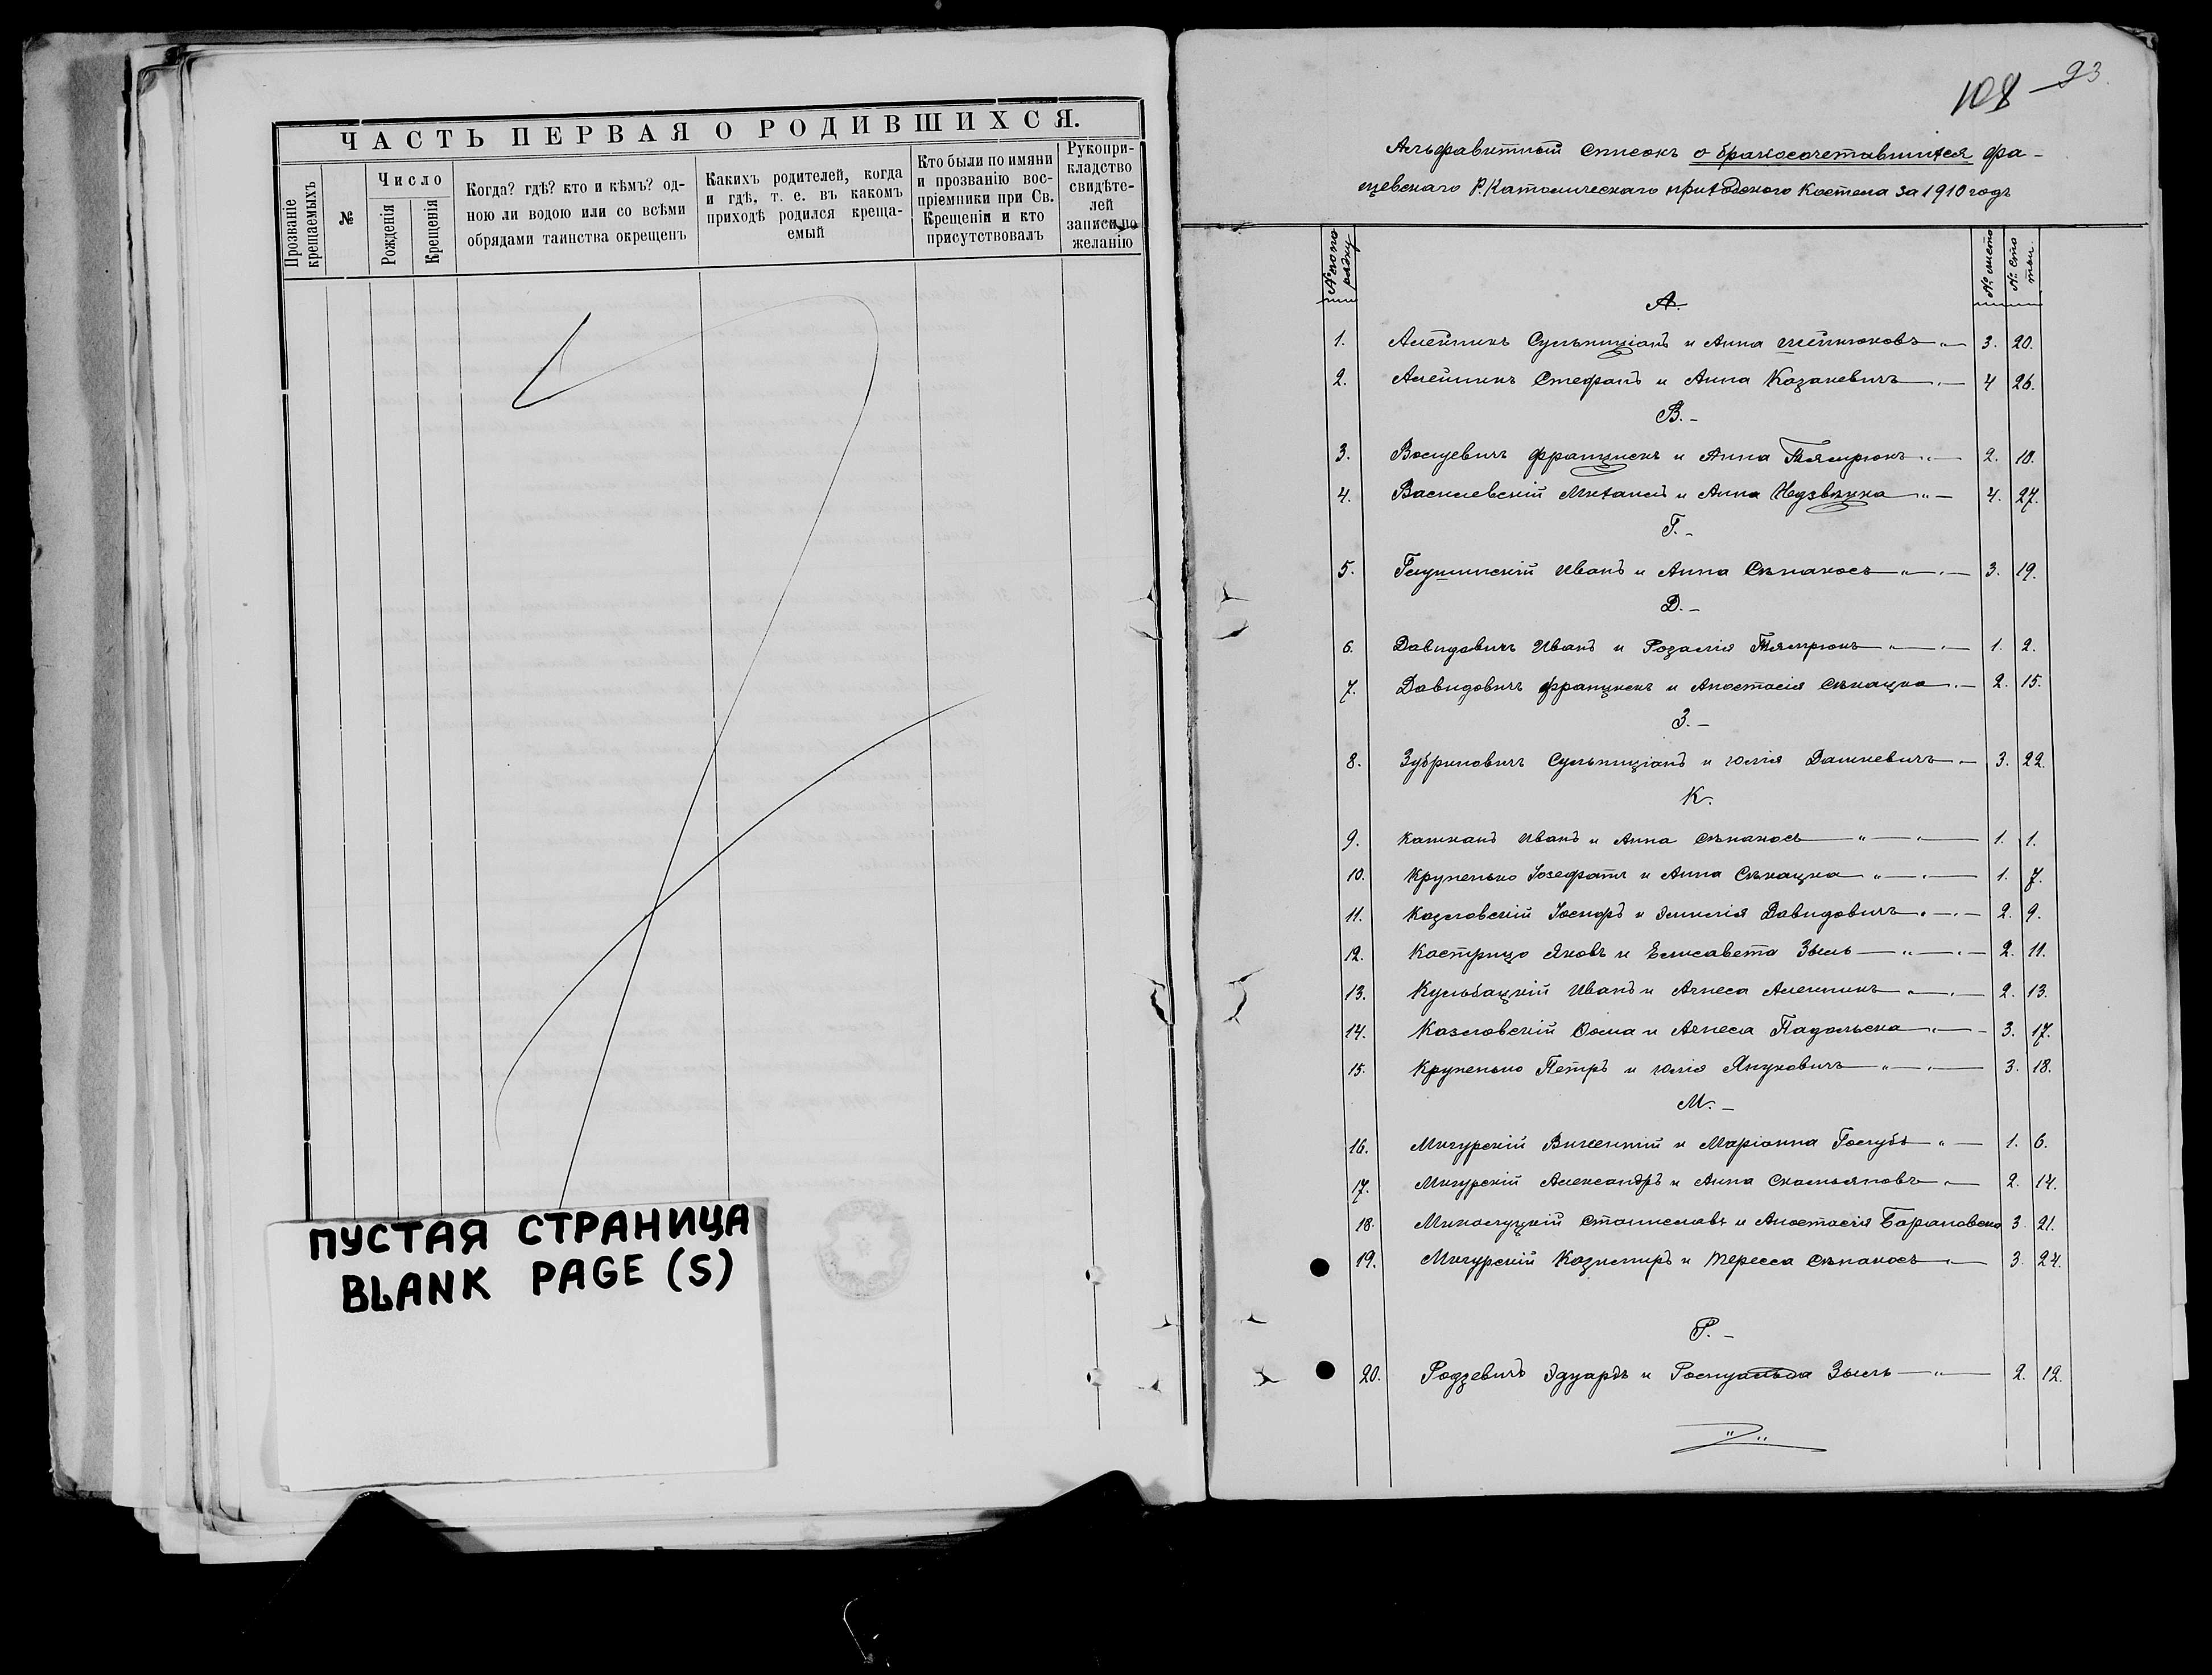 ЧАСТЬ ПЕРВАЯ О РОДИВШИХСЯ.
Прозваніе крещаемыхъ
№
Число
Рожденія
Крещенія
Когда? гдѣ? кто и кѣмъ? од-
ною ли водою или со всѣми
обрядами таинства окрещенъ
Какихъ родителей, когда
и гдѣ, т. е. въ какомъ
приходѣ родился креща-
емый
Кто были по имяни
и прозванію вос-
пріемники при Св.
Крещеніи и кто
присутствовалъ
Рукопри-
кладство
свидѣте-
лей
записи по
желанію
ПУСТАЯ СТРАНИЦА
BLANK PAGE (S)
108 93.
Альфавитный списокъ о бракосочетавшихся фра-
щевскаго Р. Католическаго приходскаго Костела за 1910 годъ
№ по по рядку
№ листа
№ ста тьи.
А.
1. Алейникъ Сульпиціанъ и Анна 3. 20.
2. Алейникъ Стефанъ и Анна Казакевичъ 4 26.
В. -
3. Францискъ и Анна Тямрюкъ 2. 10.
4. Василевскій Михаилъ и Анна 4. 27.
Г. -
5. Глушинскій Иванъ и Анна 3. 19.
Д. -
6. Давидовичъ Иванъ и Розалія Тямрюкъ 1. 2.
7. Давидовичъ Францискъ и Анастасія Сѣкацка 2. 15.
З. -
8. Зубриновичъ Сульпиціанъ и Юлія Дашкевичъ 3. 22.
К.
9. Кашканъ Иванъ и Анна 1. 1.
10. Крупенько Іозефатъ и Анна Сѣкацка 1. 7.
11. Казловскій Іосифъ и Эмилія Давидовичъ 2. 9.
12. Кострицо Яковъ и Елисавета Зыль 2. 11.
13. Кульбацкій Иванъ и Агнеса Алейникъ 2. 13.
14. Казловскій Ѳома и Агнеса Падольска 3. 17.
15. Крупенько Петръ и Юлія Януковичъ 3. 18.
М. -
16. Мигурскій Викентій и Маріанна Голубъ 1. 6.
17. Мигурскій Александръ и Анна 2. 14.
18. Станиславъ и Анастасія Барановска 3. 21.
19. Мигурскій Казимиръ и Тересса 3. 24.
Р. -
20. Родзевичъ Эдуардъ и Зыль 2. 12.